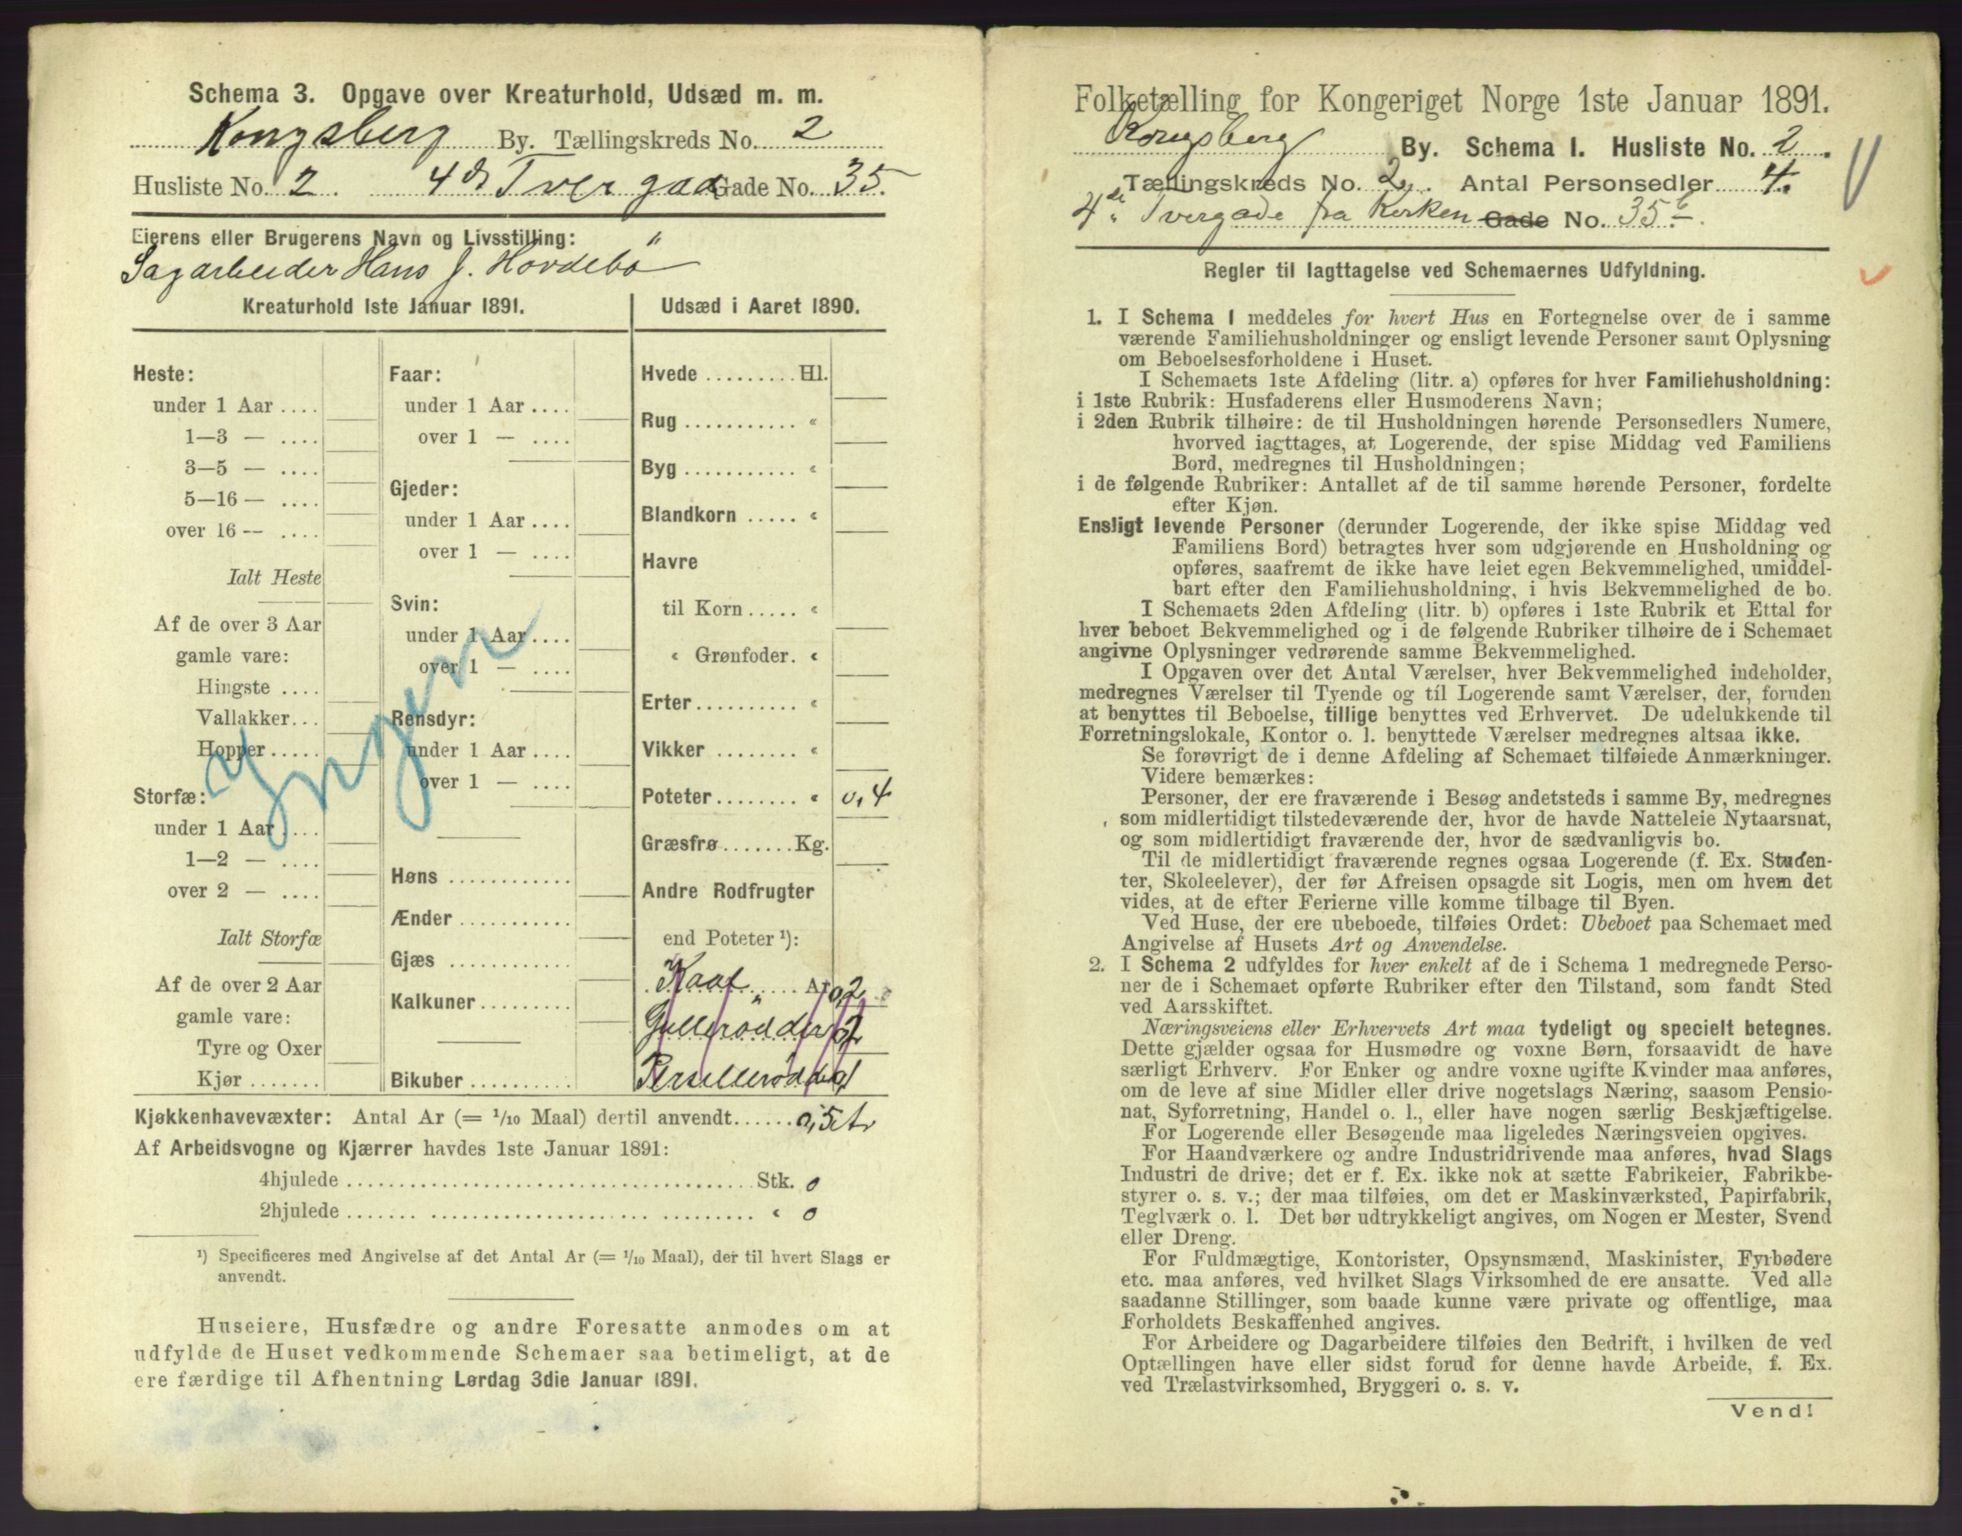 Schema 3. Opgave over Kreaturhold, Udsæd m. m.
Kongsberg By. Tællingskreds No. 2
Husliste No. 2. 4de Tvergade Gade No. 35.
Eierens eller Brugerens Navn og Livsstilling:
Sagarbeider Hans J. Hovdebö
Kreaturhold 1ste Januar 1891.
Heste:
under 1 Aar ....
1—3 — ....
3—5 — ....
5—16 — ....
over 16 — ....
Ialt Heste
Af de over 3 Aar
gamle vare:
Hingste ....
Vallakker...
Hopper.....
Storfæ:
under 1 Aar ....
1—2 — ....
over 2 — ....
Ialt Storfæ
Af de over 2 Aar
gamle vare:
Tyre og Oxer
Kjør .......
Faar:
under 1 Aar ....
over 1 — ....
Gjeder:
under 1 Aar ....
over 1 — ....
Svin:
under 1 Aar ....
over 1 — ....
Rensdyr:
under 1 Aar ....
over 1 — ....
Høns ............
Ænder ...........
Gjæs ............
Kalkuner.........
Bikuber ..........
Ingen
Udsæd i Aaret 1890.
Hvede ......... Hl.
Rug ........... "
Byg ........... "
Blandkorn ..... "
Havre
til Korn ..... "
" Grønfoder. "
Erter .......... "
Vikker ........ "
Poteter ........ " 0,4
Græsfrø ....... Kg.
Andre Rodfrugter
end Poteter ¹):
Kaal Ar 0,2
Gullerødder 0,2
Persillerødder 0,1
Kjøkkenhavevæxter: Antal Ar (= 1/10 Maal) dertil anvendt...... 0,5 Ar
Af Arbeidsvogne og Kjærrer havdes 1ste Januar 1891:
4hjulede .......... Stk. 0
2hjulede .......... " 0
¹) Specificeres med Angivelse af det Antal Ar (= 1/10 Maal), der til hvert Slags er
anvendt.
Huseiere, Husfædre og andre Foresatte anmodes om at
udfylde de Huset vedkommende Schemaer saa betimeligt, at de
ere færdige til Afhentning Lørdag 3die Januar 1891.
Folketælling for Kongeriget Norge 1ste Januar 1891.
Kongsberg By. Schema I. Husliste No. 2.
Tællingskreds No. 2. Antal Personsedler 4.
4de Tvergade fra Kirken Gade No. 35b.
Regler til Iagttagelse ved Schemaernes Udfyldning.
1. I Schema 1 meddeles for hvert Hus en Fortegnelse over de i samme
værende Familiehusholdninger og ensligt levende Personer samt Oplysning
om Beboelsesforholdene i Huset.
I Schemaets 1ste Afdeling (litr. a) opføres for hver Familiehusholdning:
i 1ste Rubrik: Husfaderens eller Husmoderens Navn;
i 2den Rubrik tilhøire: de til Husholdningen hørende Personsedlers Numere,
hvorved iagttages, at Logerende, der spise Middag ved Familiens
Bord, medregnes til Husholdningen;
i de følgende Rubriker: Antallet af de til samme hørende Personer, fordelte
efter Kjøn.
Ensligt levende Personer (derunder Logerende, der ikke spise Middag ved
Familiens Bord) betragtes hver som udgjørende en Husholdning og
opføres, saafremt de ikke have leiet egen Bekvemmelighed, umiddel-
bart efter den Familiehusholdning, i hvis Bekvemmelighed de bo.
I Schemaets 2den Afdeling (litr. b) opføres i 1ste Rubrik et Ettal for
hver beboet Bekvemmelighed og i de følgende Rubriker tilhøire de i Schemaet
angivne Oplysninger vedrørende samme Bekvemmelighed.
I Opgaven over det Antal Værelser, hver Bekvemmelighed indeholder,
medregnes Værelser til Tyende og til Logerende samt Værelser, der, foruden
at benyttes til Beboelse, tillige benyttes ved Erhvervet. De udelukkende til
Forretningslokale, Kontor o. l. benyttede Værelser medregnes altsaa ikke.
Se forøvrigt de i denne Afdeling af Schemaet tilføiede Anmærkninger.
Videre bemærkes:
Personer, der ere fraværende i Besøg andetsteds i samme By, medregnes
som midlertidigt tilstedeværende der, hvor de havde Natteleie Nytaarsnat,
og som midlertidigt fraværende der, hvor de sædvanligvis bo.
Til de midlertidigt fraværende regnes ogsaa Logerende (f. Ex. Studen-
ter, Skoleelever), der før Afreisen opsagde sit Logis, men om hvem det
vides, at de efter Ferierne ville komme tilbage til Byen.
Ved Huse, der ere ubeboede, tilføies Ordet: Ubeboet paa Schemaet med
Angivelse af Husets Art og Anvendelse.
2. I Schema 2 udfyldes for hver enkelt af de i Schema 1 medregnede Perso-
ner de i Schemaet opførte Rubriker efter den Tilstand, som fandt Sted
ved Aarsskiftet.
Næringsveiens eller Erhvervets Art maa tydeligt og specielt betegnes.
Dette gjælder ogsaa for Husmødre og voxne Børn, forsaavidt de have
særligt Erhverv. For Enker og andre voxne ugifte Kvinder maa anføres,
om de leve af sine Midler eller drive nogetslags Næring, saasom Pensio-
nat, Syforretning, Handel o. l., eller have nogen særlig Beskjæftigelse.
For Logerende eller Besøgende maa ligeledes Næringsveien opgives.
For Haandværkere og andre Industridrivende maa anføres, hvad Slags
Industri de drive; det er f. Ex. ikke nok at sætte Fabrikeier, Fabrikbe-
styrer o. s. v.; der maa tilføies, om det er Maskinværksted, Papirfabrik,
Teglværk o. l. Det bør udtrykkeligt angives, om Nogen er Mester, Svend
eller Dreng.
For Fuldmægtige, Kontorister, Opsynsmænd, Maskinister, Fyrbødere
etc. maa anføres, ved hvilket Slags Virksomhed de ere ansatte. Ved alle
saadanne Stillinger, som baade kunne være private og offentlige, maa
Forholdets Beskaffenhed angives.
For Arbeidere og Dagarbeidere tilføies den Bedrift, i hvilken de ved
Optællingen have eller sidst forud for denne havde Arbeide, f. Ex.
ved Trælastvirksomhed, Bryggeri o. s. v.
Vend!